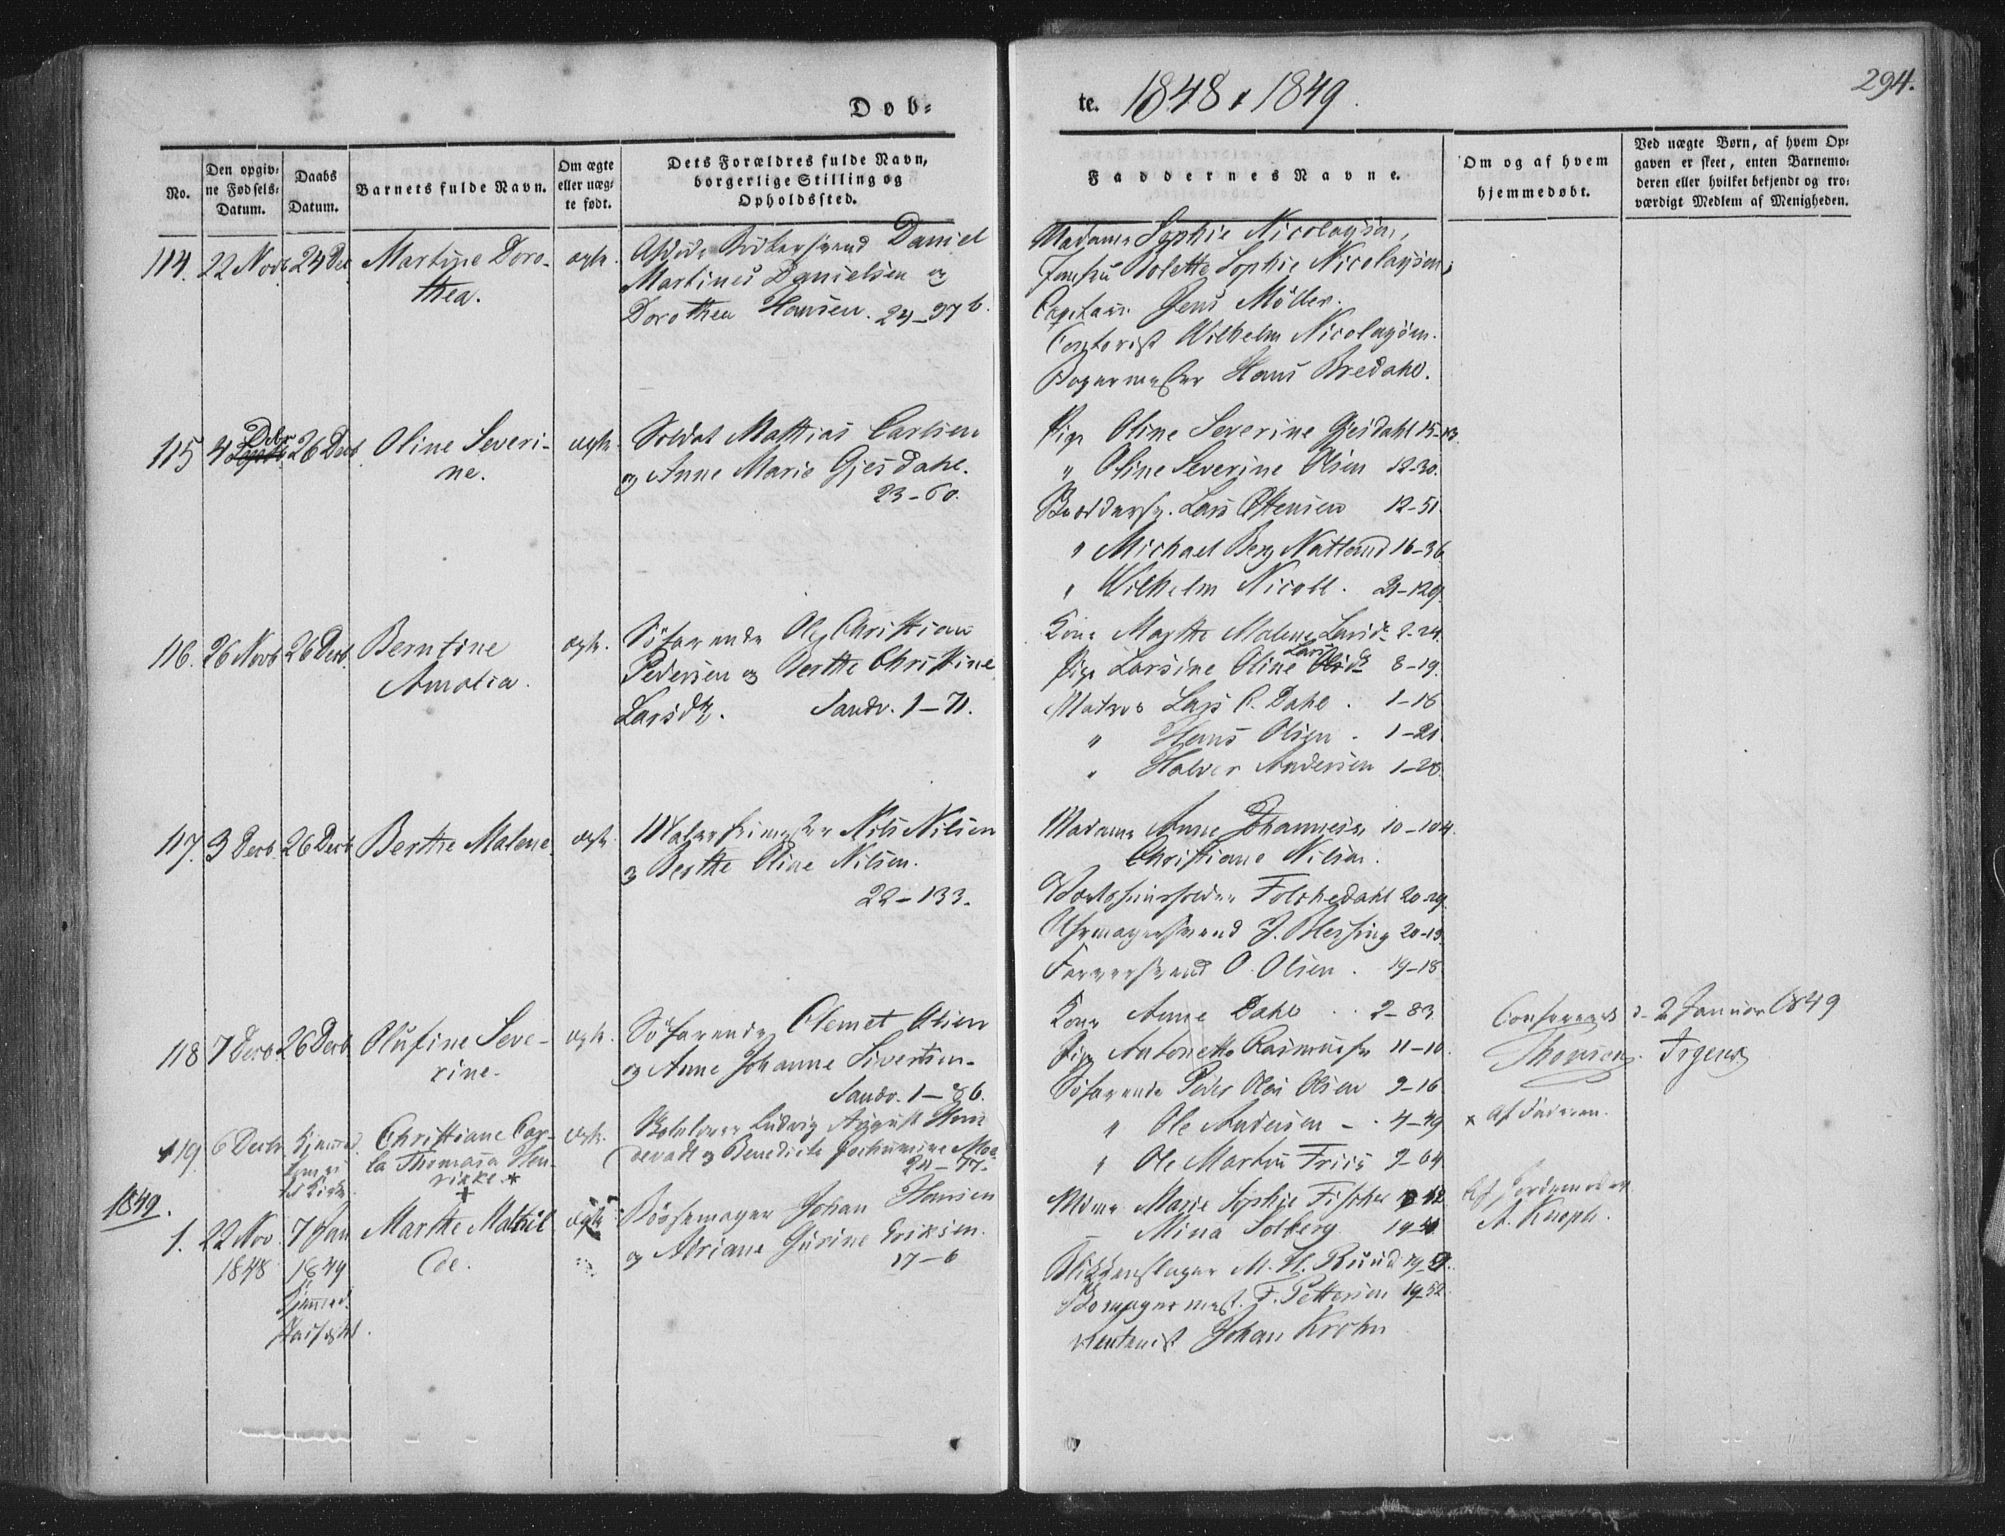 Døb=
te. 1848 & 1849.
294.
No.
Den opgiv=
ne Fødsels=
Datum.
Daabs
Datum.
Barnets fulde Navn.
Om ægte
eller uæg=
te født.
Dets Forældres fulde Navn,
borgerlige Stilling og
Opholdssted.
Faddernes Navne.
Om og af hvem
hjemmedøbt.
Ved uægte Børn, af hvem Op=
gaven er skeet, enten Barnemo=
deren eller hvilket bekjendt og tro=
værdigt Medlem af Menigheden.
114. 22 Novb 24 Dec Martine Doro-
thea.
ægte.
Daniel
Martinus Danielsen og
Dorothea Hansen. 24-376.
Madame Sophie Nicolaysen,
Jomfru Bolette Sophie Nicolaysen,
Capitain Jens Möller.
Contorist Wilhelm Nicolaysen.
Bagermester Hans Bredahl.
115 4 Debr 26 Decb Oline Severi-
ne.
ægte.
Soldat Mathias Carlsen
og Anne Marie Gjesdahl.
23-60.
Pige Oline Severine Gjesdahl 15-13.
" Oline Severine Olsen 12-30.
Lars Ottensen 12-51.
" Michael Berg Natland 16-36.
" Wilhelm Nicoll. 21-129.
116. 26 Novb 26 Decb. Berntine
Amalia.
ægte.
Söfarende Ole Christian
Pedersen og Berthe Christine
Larsdr. Sandv. 1-71.
Kone Marthe Malene Larsdr 2-24.
Pige Larsine Oline Larsdr 8-19.
Matros Lars C. Dahl. 1-16
" Hans Olsen. 1-21.
" Halvor Andersen 1-28.
117. 3 Decb. 26 Decb Berthe Malene.
ægte.
Nils Nilsen
og Berthe Oline Nilsen.
22-133.
Madame Anne Johannesen 10-104.
Christiane Nilsen.
Vertshuusholder Folkedahl 20-29.
Uhrmagersvend J. Messing 20-13.
Farversvend O. Olsen. 19-18.
118 7 Decb. 26 Decb Olufine Seve-
rine.
ægte.
Söfarende Clemet Olsen
og Anne Johanne Sivertsen.
Sandv. 1-86.
Kone Anne Dahl. 2-83.
Pige Antonette Rasmussen 11-10.
Söfarende Peder Olai Olsen 2-16
" Ole Andersen -. 4-49
" Ole Martin Friis 2-64
Confereret d. 2 Januar 1849
Thomsen. Irgens
119. 6 Decbr Hjemmed.
Christiane Car-
la Thomasa Hen-
rikke. *
ægte.
Ludvig August
og Benedicte Jochumine Moe
24-77.
* Af Faderen.
1849.
1. 22 Nov.
1848
7 Jan
1849
Hjemmed.
Marthe Mathil
de.
ægte
Bössemager Johan Hansen
og Adriane Gurine Eriksen.
17-6
Mdme Marie Sophie Fischer
Mina Solberg.
Blikkenslager M. H. Ruud 19-
F. Pettersen 19-52.
Johan Krohn
Af Jordemoder
A. Knoph.